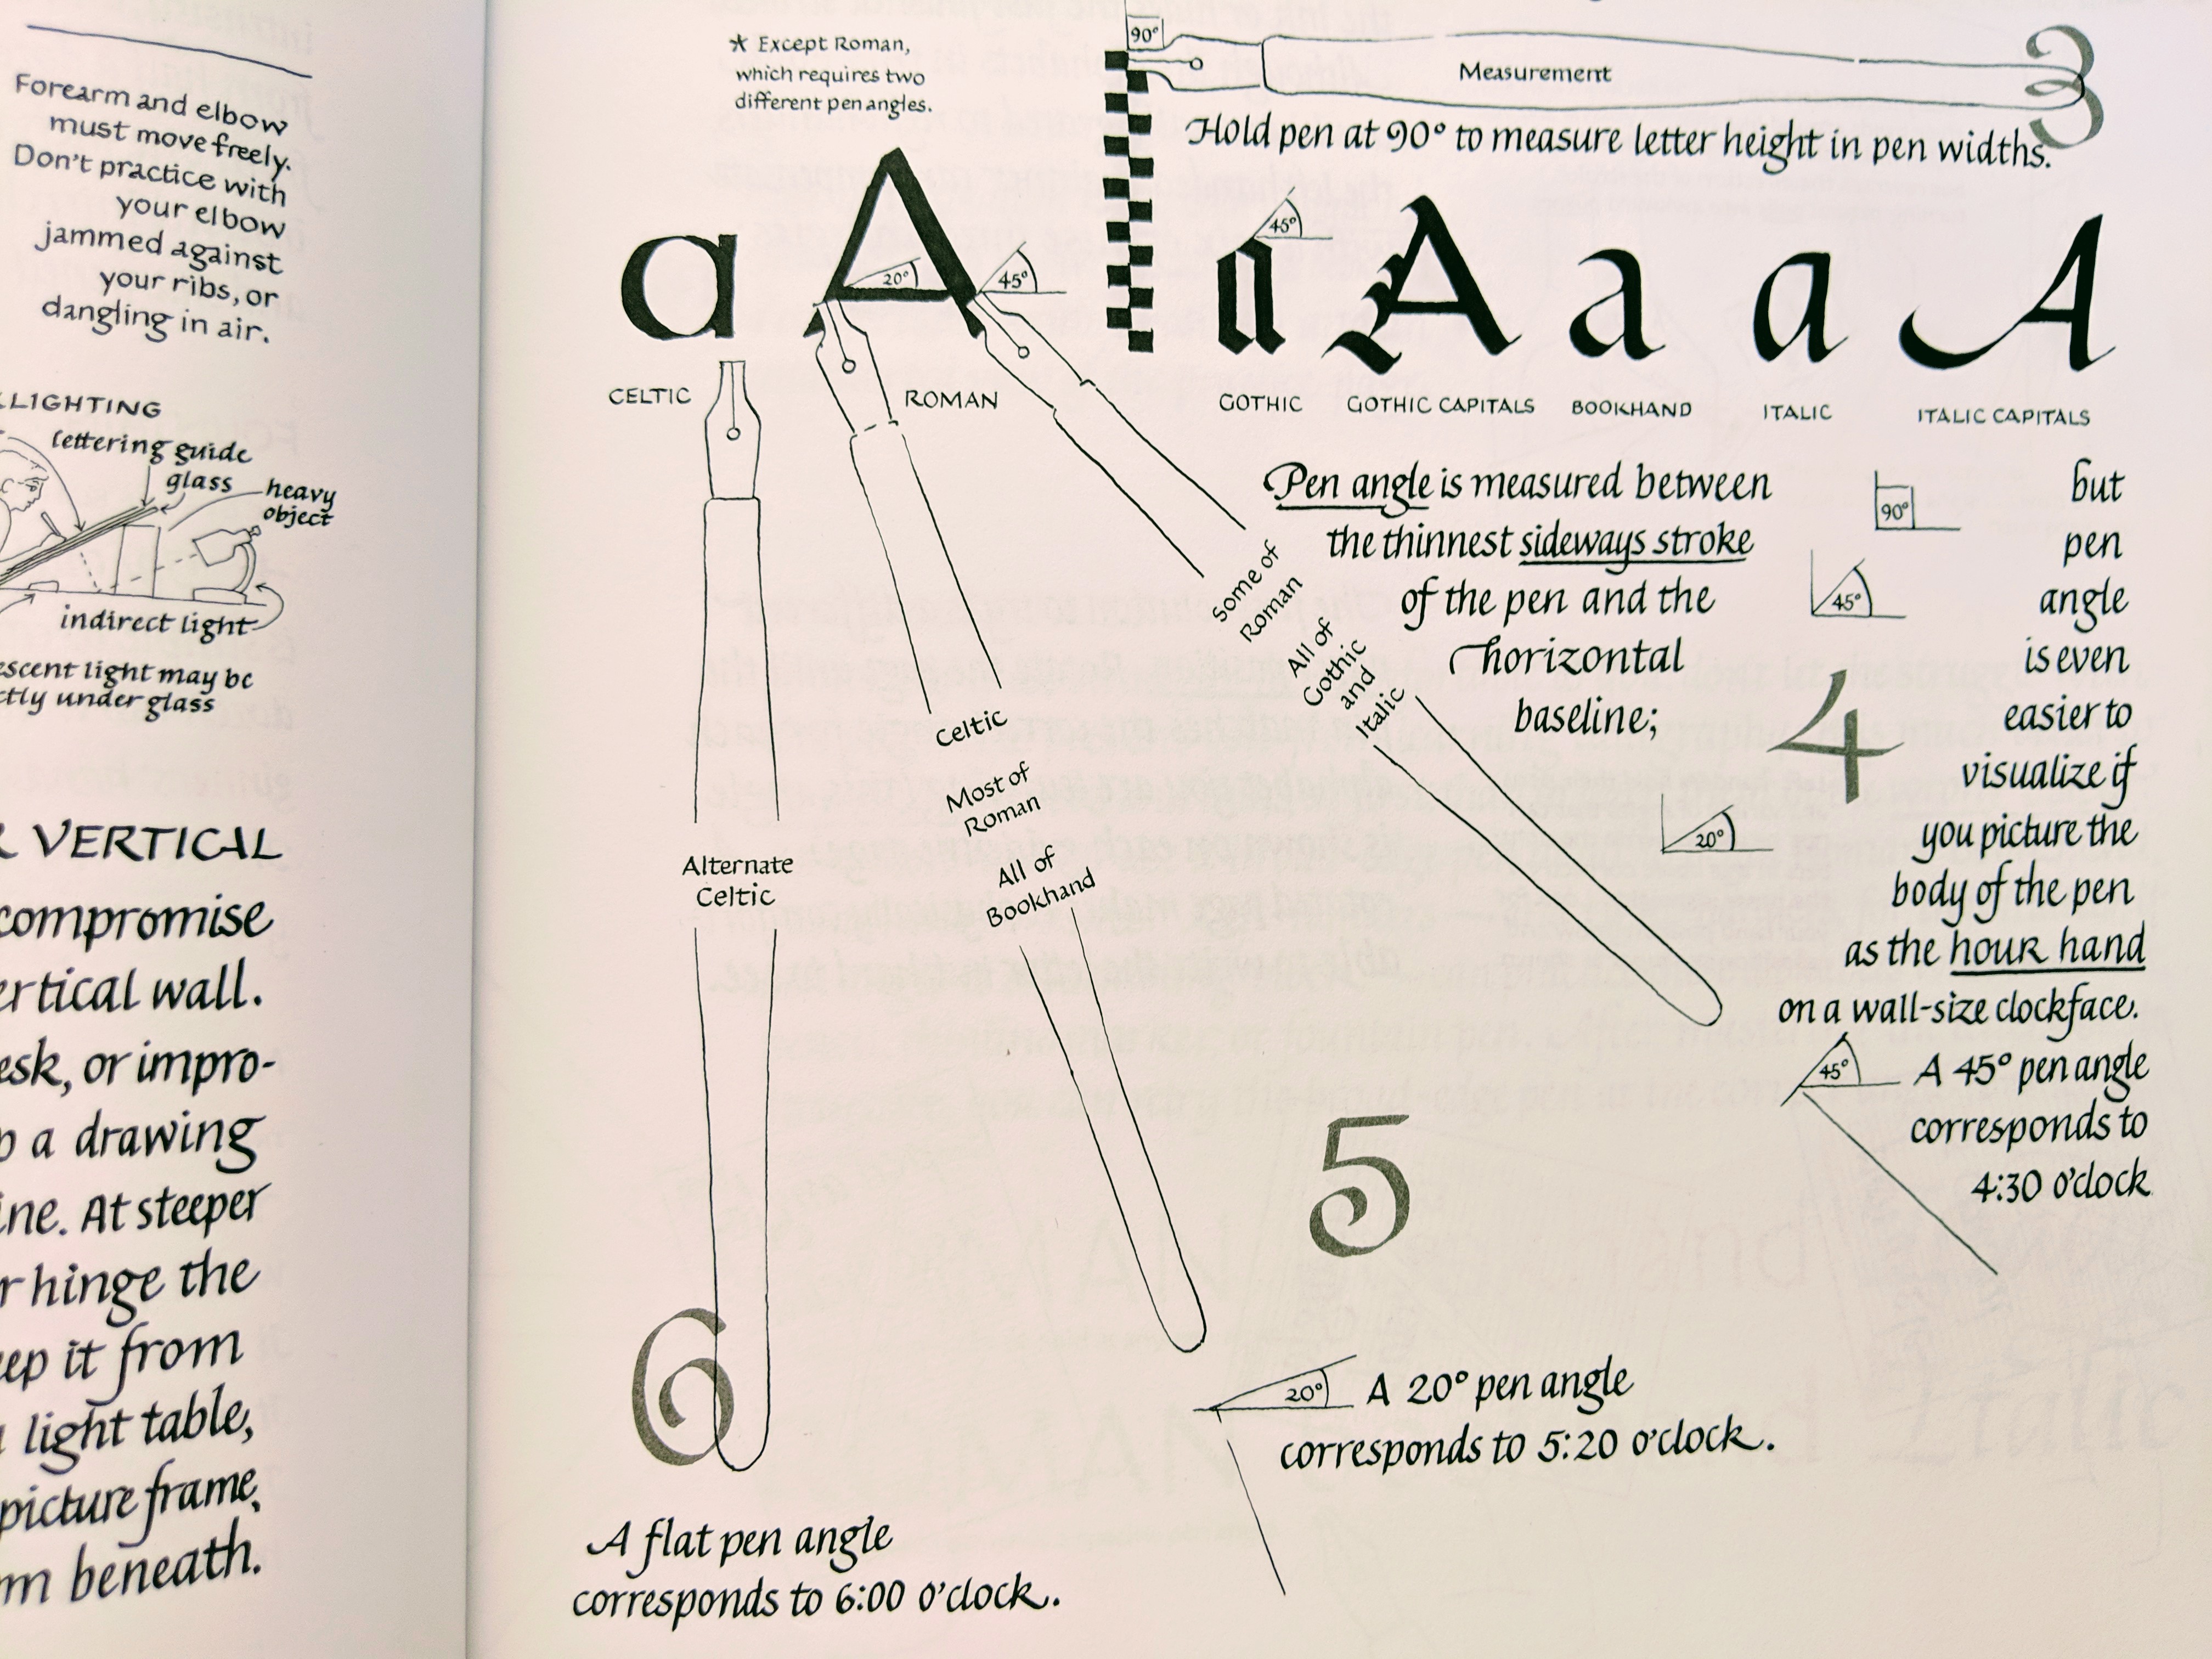 Forearm and elbow
must move freely.
Don't practice with
your elbow
jammed against
your ribs, or
dangling in air.
LIGHTING
lettering guide
glass
heavy
object
indirect light
light may be
under glass
VERTICAL
compromise
wall.
or impro-
a drawing
At steeper
hinge the
it from
light table,
picture frame,
beneath.
* Except Roman,
which requires two
different pen angles.
90°
Measurement
3
Hold pen at 90° to measure letter height in pen widths.
a A a A a a A
20°
45°
45°
CELTIC
ROMAN
GOTHIC
GOTHIC CAPITALS
BOOKHAND
ITALIC
ITALIC CAPITALS
Pen angle is measured between
the thinnest sideways stroke
of the pen and the
horizontal
baseline;
90°
45°
20°
4
but
pen
angle
is even
easier to
visualize if
you picture the
body of the pen
as the hour hand
on a wall-size clockface.
45°
A 45° pen angle
corresponds to
4:30 o'clock
Some of
Roman
All of
Gothic
and
Italic
Celtic
Most of
Roman
All of
Bookhand
Alternate
Celtic
5
20°
A 20° pen angle
corresponds to 5:20 o'clock.
6
A flat pen angle
corresponds to 6:00 o'clock.